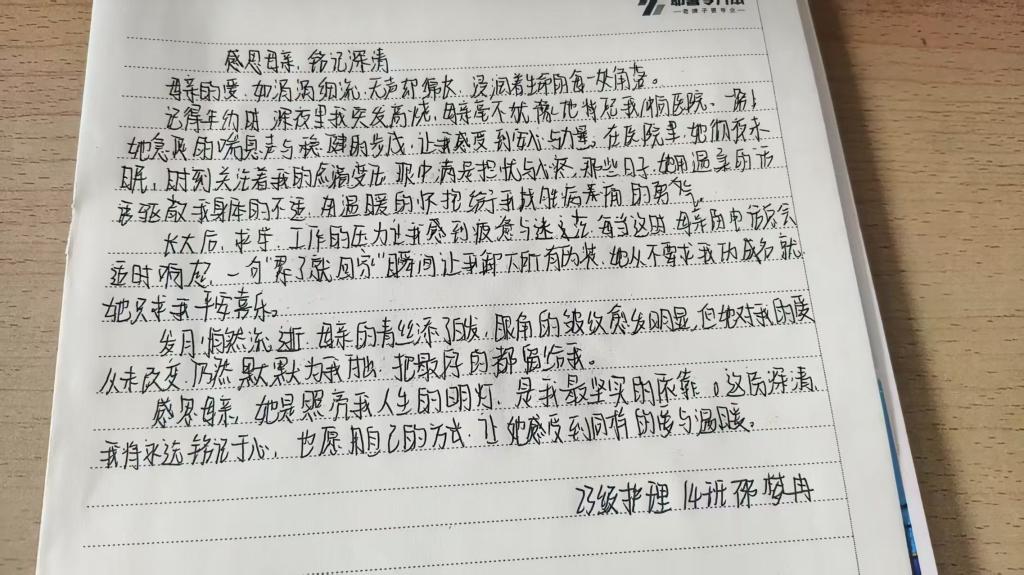 —老牌子更专业—
感恩母亲，铭记深情
母亲的爱，如涓涓细流，无声却绵长，浸润着生命的每一处角落。
记得年幼时，深夜里我突发高烧，母亲毫不犹豫地背起我冲向医院，一路上
她急促的喘息声与稳健的步伐，让我感受到安心与力量。在医院里，她彻夜未
眠，时刻关注着我的病情变化，眼中满是担忧与心疼。那些日子，她用温柔的话
语驱散我身体的不适，用温暖的怀抱给予我战胜病毒的勇气。
长大后，求学、工作的压力让我感到疲惫与迷茫，每当这时，母亲的电话总会
适时响起，一句“累了就回家”瞬间让我卸下所有伪装，她从不要求我功成名就
她只求我平安喜乐。
岁月悄然流逝，母亲的青丝添了白发，眼角的皱纹愈发明显，但她对我的爱
从未改变，仍然默默为我付出，把最好的都留给我。
感恩母亲，她是照亮我人生的明灯，是我最坚实的依靠。这份深情，
我将永远铭记于心，也愿用自己的方式，让她感受到同样的爱与温暖。
23级护理14班 梦冉